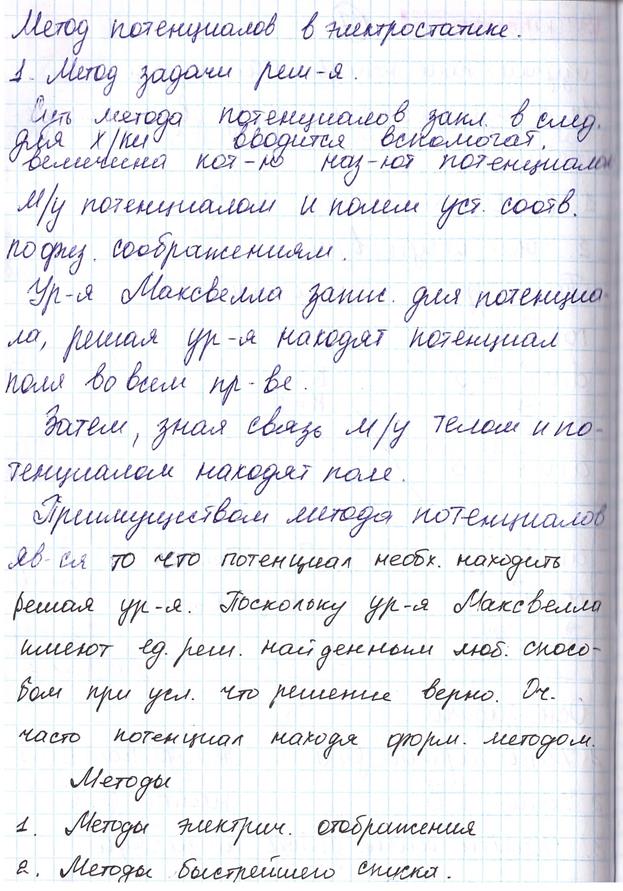 Метод потенциалов в электростатике.
1. Метод задачи реш-я.
Суть метода потенциалов закл. в след.
для х/ки вводится вспомогат.
величина кот-ю наз-ют потенциалом
М/у потенциалом и полем уст. соотв.
по физ. соображениям.
Ур-я Максвелла запис. для потенциа-
ла, решая ур-я находят потенциал
поля во всем пр-ве.
Затем, зная связь м/у телом и по-
тенциалом находят поле.
Преимуществом метода потенциалов
яв-ся то что потенциал необх. находить
решая ур-я. Поскольку ур-я Максвелла
имеют ед. реш. найденным люб. спосо-
бом при усл. что решение верно. Оч.
часто потенциал находя форм. методом.
Методы
1. Методы электрич. отображения
2. Методы быстрейшего спуска.